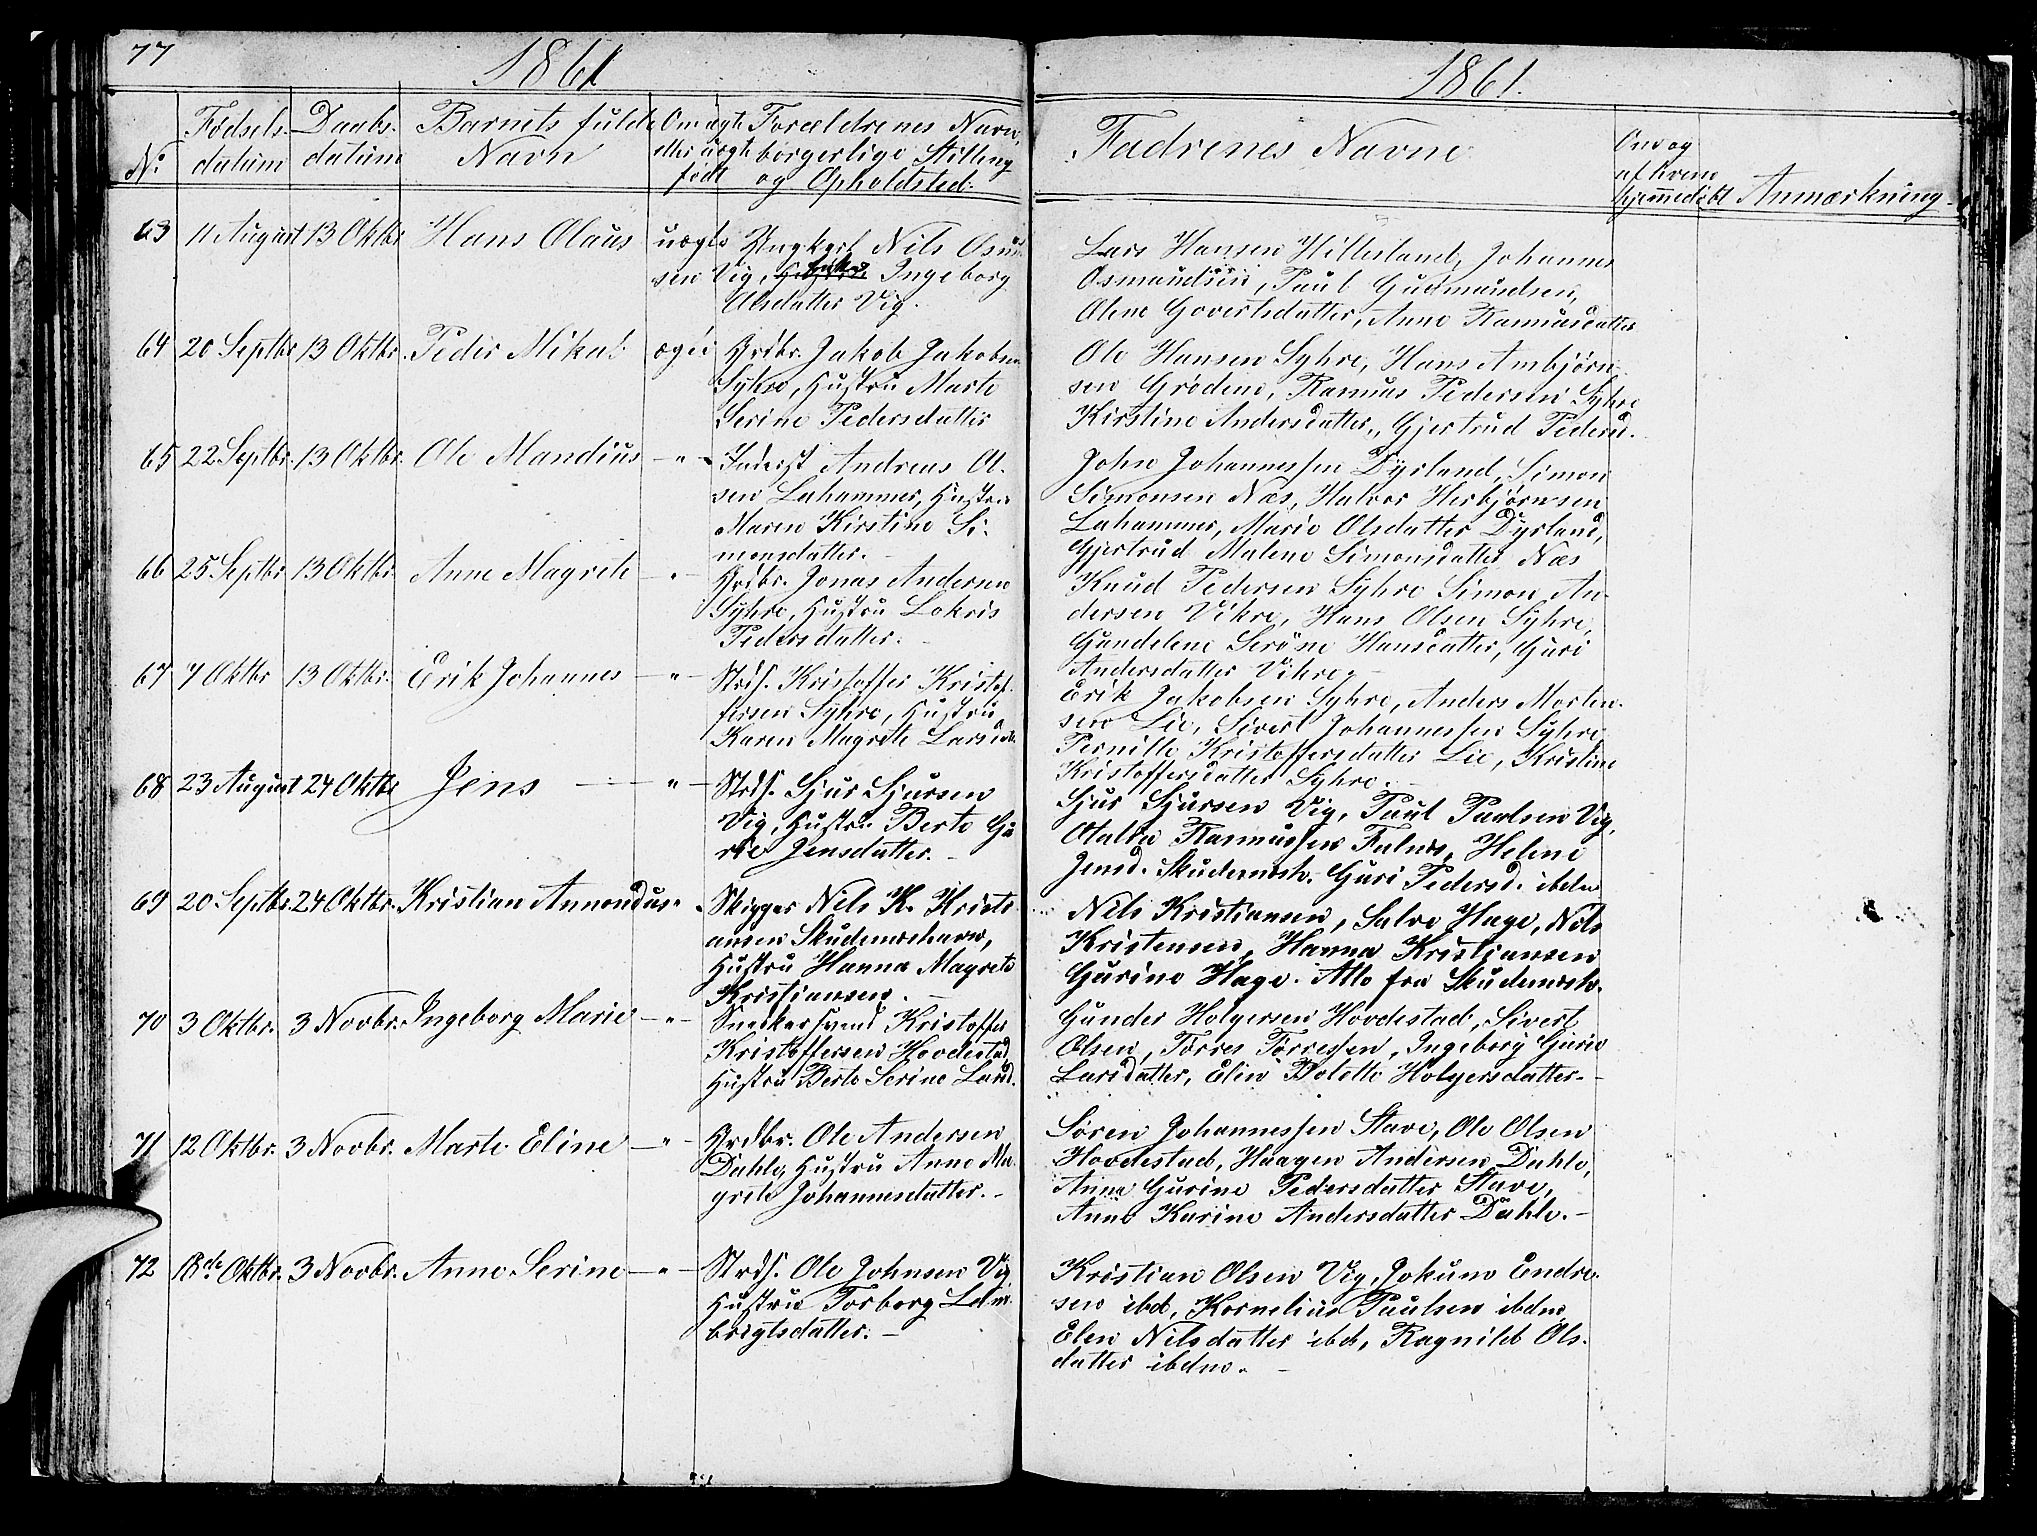 77
1861
No
Fødsels-
datum
Daabs-
datum
Barnets fulde
Navn
Om ægte
eller uægte
født
Forældrenes Navn,
borgerlige Stilling
og Opholdsted:
63 11 August 13 Oktbr Hans Olaus uægte Ungkarl Nils Osm
sen Vig, Ingeborg
Olsdatter Vig.
64 20 Septbr 13 Oktbr. Peder Mikal ægte Grdbr. Jakob Jakobsen
Syhre, Hustru Marte
Serine Pedersdatter
65 22 Septbr. 13 Oktbr. Ole Mandius — " — Inderst Andreas Ol-
sen Lahammer, Hustru
Maren Kirstine Si-
monsdatter. —
66 25 Septbr 13 Oktbr. Anne Magrete — " — Grdbr. Jonas Andersen
Syhre, Hustru Lokris
Pedersdatter. —
67 7 Oktbr 13 Oktbr. Erik Johannes — " — Strds. Kristoffer Kristof-
fersen Syhre, Hustru
Karen Magrete Larsdat
68 23 August 24 Oktbr Jens — " — Strds. Sjur Sjursen
Vig, Hustru Berte Gu
rie Jensdatter. —
69 20 Septbr. 24 Oktbr. Kristian Annondus " Skipper Nils K. Kristi
ansen Skudenæshavn,
Hustru Hanna Magrete
Kristiansen. —
70 3 Oktbr. 3 Novbr. Ingeborg Marie — " — Snedkersvend Kristoffer
Kristoffersen Hovdestad,
Hustru Berte Serine Larsd.
71 12 Oktbr. 3 Novbr. Marte Eline — " — Grdbr. Ole Andersen
Dahle, Hustru Anne Ma-
grete Johannesdatter. —
72 18de Oktbr. 3 Novbr. Anne Serine — " — Strds. Ole Johnsen Vig,
Hustru Torborg Lem-
brigtsdatter. —
1861.
Fadrenes Navne
Om og
af hvem
hjemmedøbt
Anmærkning.
Lars Hansen Hilleland, Johannes
Osmundsen, Paul Gudmundsen,
Olene Govertsdatter, Anne Rasmusdatter
Ole Hansen Syhre, Hans Ambjørn-
sen Grødene, Rasmus Pedersen Syhre
Kirstine Andersdatter, Gjertrud Pedersd.
John Johannessen Dyrland, Simon
Simonsen Næs, Halvor Herbjørnsen
Lahammer, Marie Olsdatter Dyrland,
Gjertrud Malene Simonsdatter Næs
Knud Pedersen Syhre Simon An-
dersen Vikre, Hans Olsen Syhre,
Gundelene Serine Hansdatter, Guri
Andersdatter Vikre. —
Erik Jakobsen Syhre, Anders Morten-
sen Lie, Sivert Johannessen Syhre
Pernille Kristoffersdatter Lie, Kristine
Kristoffersdatter Syhre. —
Sjur Sjursen Vig, Paul Paulsen Vig,
Rasmussen Falnes, Helene
Jensd. Skudenæsh. Guri Pedersd. ibdm
Nils Kristiansen, Salve Hage, Nils
Kristensen, Hanna Kristiansen
Gurine Hage. Alle fra Skudenæsh.
Gunder Holgersen Hovdestad, Sivert
Olsen, Torres Torressen, Ingeborg Gurie
Larsdatter, Elen Bolette Holgersdatter. —
Søren Johannessen Stave, Ole Olsen
Hovdestad, Haagen Andersen Dahle,
Anna Gurine Pedersdatter Stave,
Anne Karine Andersdatter Dahle. —
Kristian Olsen Vig, Jokum Endre-
sen ibd, Kornelius Paulsen ibdm,
Elen Nilsdatter ibd, Ragnild Ols-
datter ibdm. —